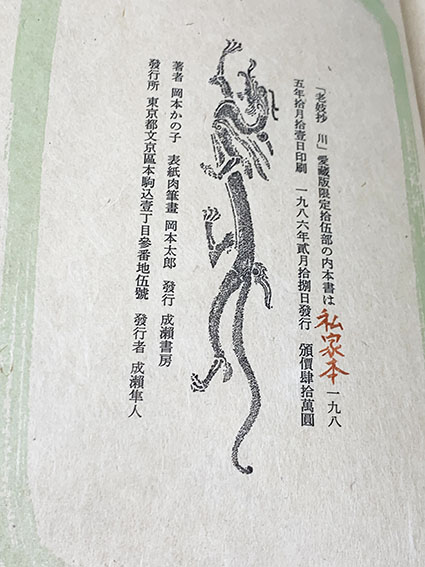 「老妓抄 川」愛藏版限定拾伍部の内本書は 私家本 一九八
五年拾月拾壹日印刷 一九八六年貳月拾捌日發行 頒價肆拾萬圓
著者 岡本かの子 表紙肉筆畫 岡本太郎 發行 成瀬書房
發行所 東京都文京區本駒込壹丁目參番地伍號 發行者 成瀬隼人